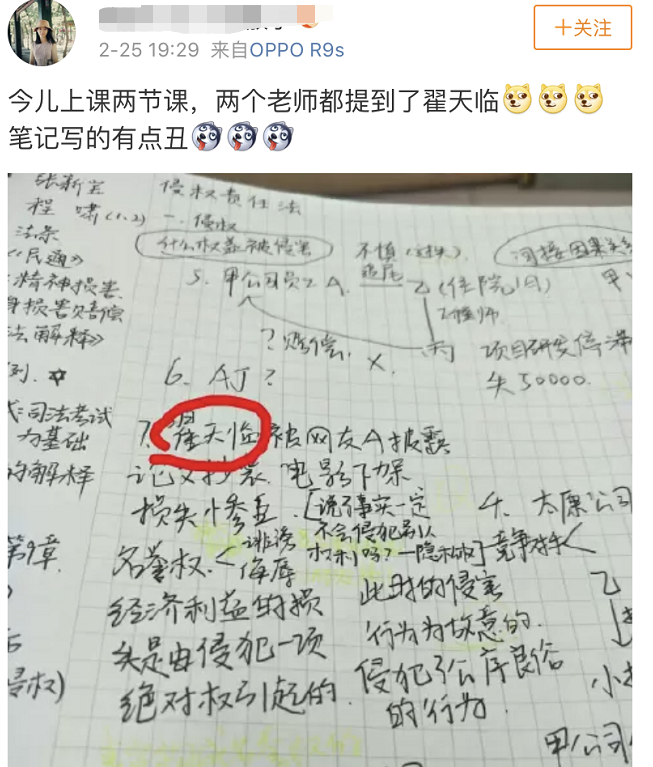 2-25 19:29 来自OPPO R9s
十关注
今儿上课两节课，两个老师都提到了翟天临
笔记写的有点丑
张新宝
程啸(1、2)
法条
《民通》
精神损害
身损害赔偿
法解释》
例.
司法考试
为基础
的解释
第9章
侵权)
侵权责任法
一、侵权
什么权益被侵害
不慎(过失)
追尾
间接因果关系
5. 甲公司员工A
乙(住院1月)
工程师
?赔偿
×
丙
项目研发停滞
失50000.
6. AJ?
7. 翟天临被网友A披露
论文抄袭. 电影下架
损失惨重.
[说了事实一定
不会侵犯别人
权利吗?—隐私权]
名誉权.<诽谤
侮辱
经济利益的损
失是由侵犯一项
绝对权引起的.
此时的侵害
行为为故意的.
侵犯了公序良俗
的行为.
4. 太原公司
竞争对手<
乙
甲公司